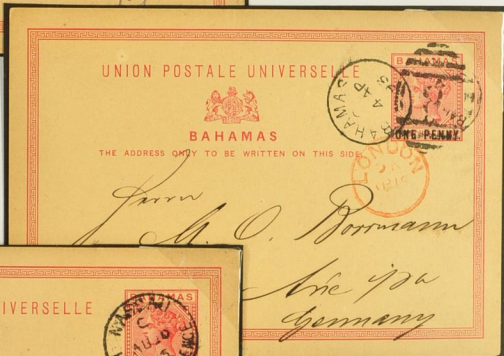 UNION POSTALE UNIVERSELLE
BAHAMAS
THE ADDRESS ONLY TO BE WRITTEN ON THIS SIDE.
BAHAMAS
ONE PENNY
BAHAMAS
AP
LONDON
Herrn
M. O. Borrmann
Germany
IVERSELLE
BAHAMAS